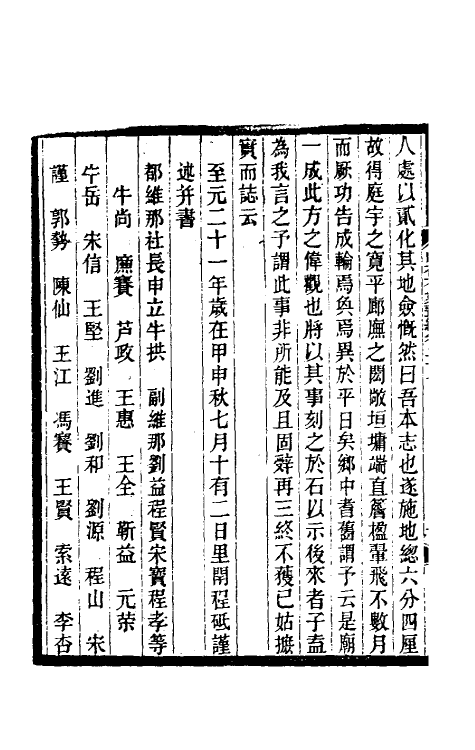 八處以貳化其地僉慨然曰吾本志也遂施地總六分四厘
故得庭宇之寬平廊廡之閎敞垣墉端直簷楹翬飛不數月
而厥功告成輪焉奐焉異於平日矣鄉中耆舊謂予云是廟
一成此方之偉觀也將以其事刻之於石以示後來者子盍
為我言之予謂此事非所能及且固辤再三終不獲已姑摭
實而誌云
至元二十一年歲在甲申秋七月十有二日里閈程砥謹
述并書
都維那社長申立牛拱 副維那劉益程賢宋寶程孝等
牛尚 㢘賽 芦政 王惠 王全 靳益 元荣
牛岳 宋信 王堅 劉進 劉和 劉源 程山 宋
謹 郭勢 陳仙 王江 馮賽 王賢 索遠 李杏